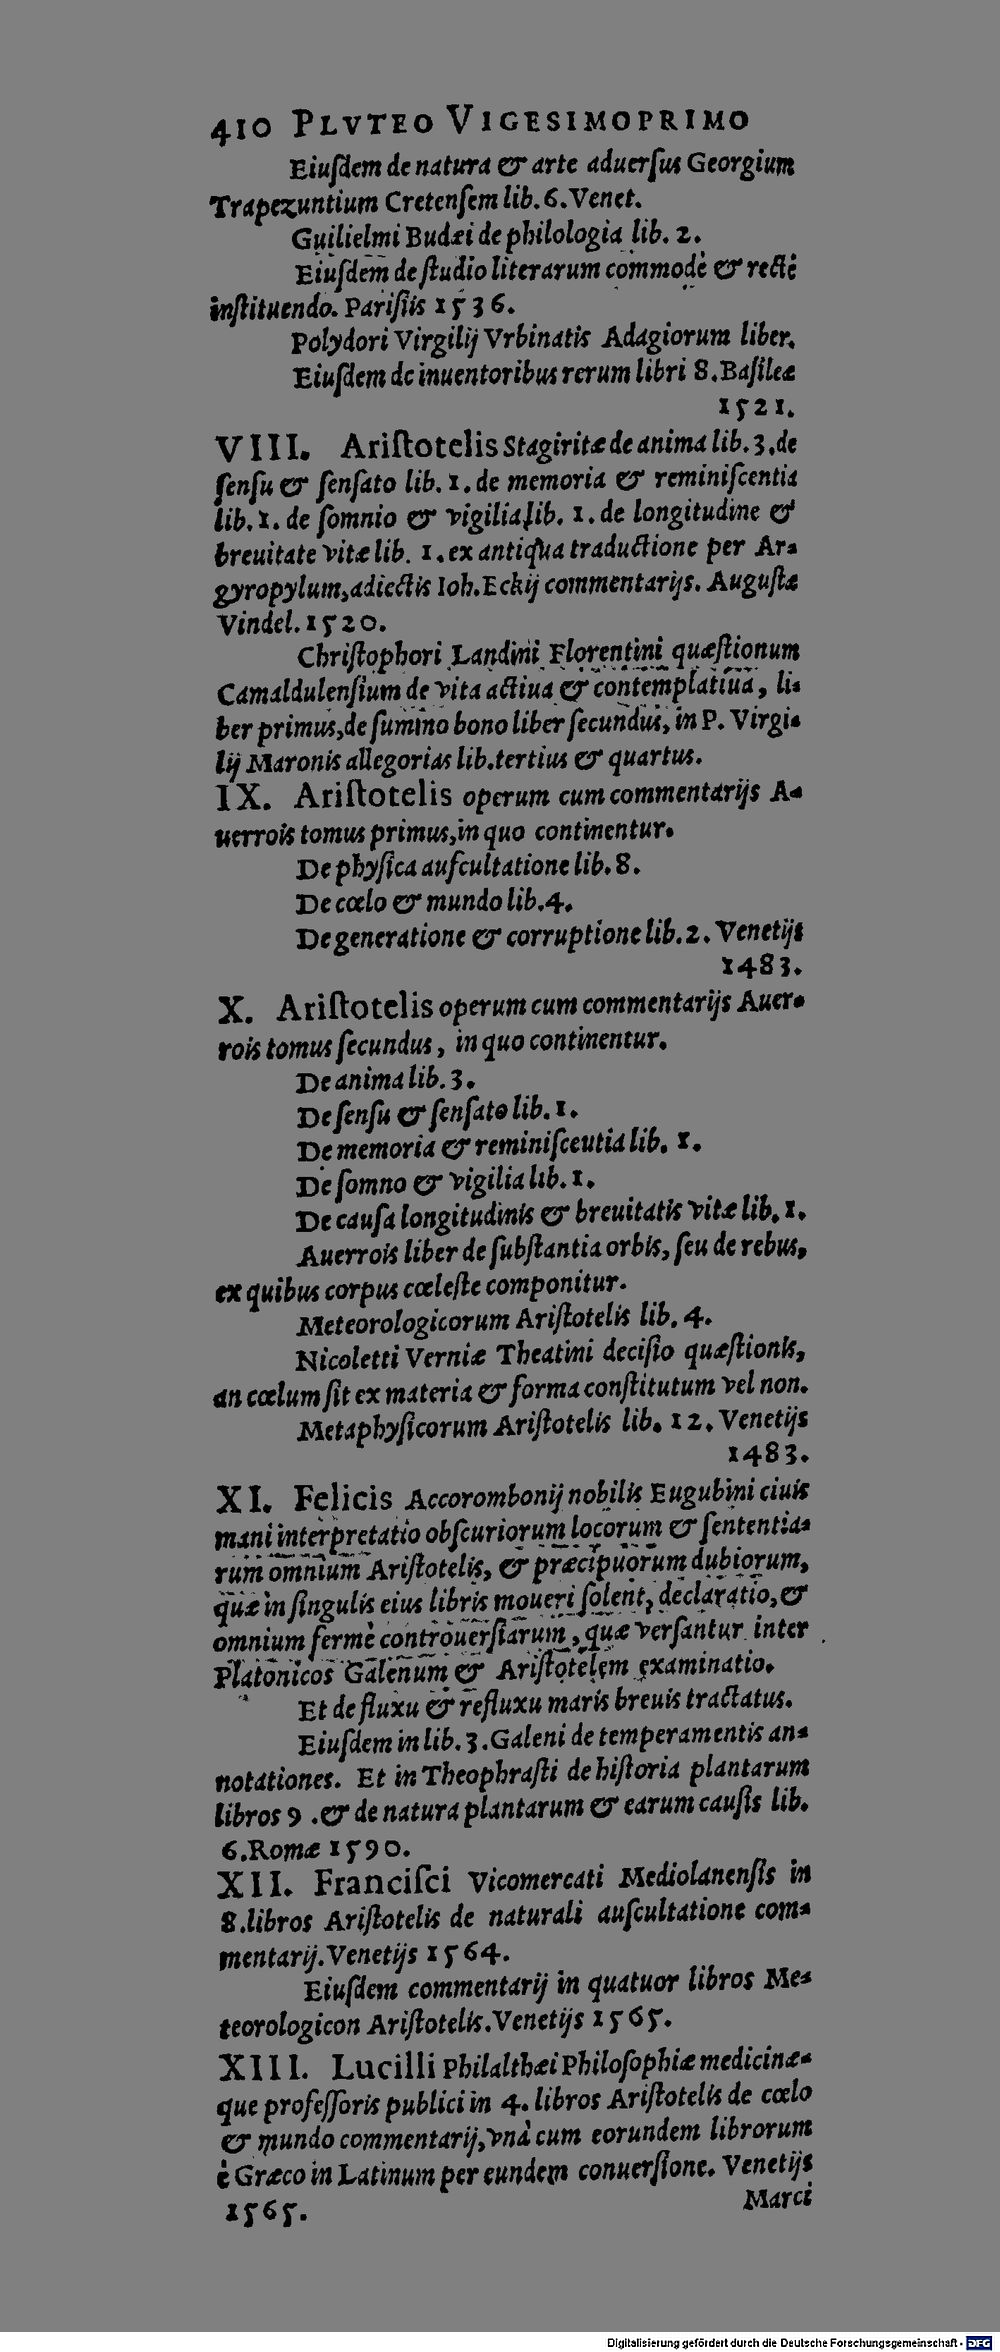 410 PLVTEO VIGESIMOPRIMO
Eiuſdem de natura & arte aduerſus Georgium
Trapezuntium Cretenſem lib. 6. Venet.
Guilielmi Budæi de philologia lib. 2.
Eiuſdem de ſtudio literarum commodè & rectè
inſtituendo. Pariſiis 1536.
Polydori Virgilij Vrbinatis Adagiorum liber.
Eiuſdem de inuentoribus rerum libri 8. Baſileæ
1521.
VIII. Ariſtotelis Stagiritæ de anima lib. 3. de
ſenſu & ſenſato lib. 1. de memoria & reminiſcentia
lib. 1. de ſomnio & vigilia lib. 1. de longitudine &
breuitate vitæ lib. 1. ex antiqua traductione per Ar-
gyropylum, adiectis Ioh. Eckij commentarijs. Auguſtæ
Vindel. 1520.
Chriſtophori Landini Florentini quæſtionum
Camaldulenſium de vita actiua & contemplatiua, li-
ber primus, de ſummo bono liber ſecundus, in P. Virgi-
lij Maronis allegorias lib. tertius & quartus.
IX. Ariſtotelis operum cum commentarijs A-
uerrois tomus primus, in quo continentur.
De phyſica auſcultatione lib. 8.
De cœlo & mundo lib. 4.
De generatione & corruptione lib. 2. Venetijs
1483.
X. Ariſtotelis operum cum commentarijs Auer-
rois tomus ſecundus, in quo continentur.
De anima lib. 3.
De ſenſu & ſenſato lib. 1.
De memoria & reminiſceutia lib. 1.
De ſomno & vigilia lib. 1.
De cauſa longitudinis & breuitatis vitæ lib. 1.
Auerrois liber de ſubſtantia orbis, ſeu de rebus,
ex quibus corpus cœleſte componitur.
Meteorologicorum Ariſtotelis lib. 4.
Nicoletti Verniæ Theatini deciſio quæſtionis,
an cœlum ſit ex materia & forma conſtitutum vel non.
Metaphyſicorum Ariſtotelis lib. 12. Venetijs
1483.
XI. Felicis Accorombonij nobilis Eugubini ciuis
mani interpretatio obſcuriorum locorum & ſententia-
rum omnium Ariſtotelis, & præcipuorum dubiorum,
quæ in ſingulis eius libris moueri ſolent, declaratio, &
omnium fermè controuerſiarum, quæ verſantur inter
Platonicos Galenum & Ariſtotelem examinatio.
Et de fluxu & refluxu maris breuis tractatus.
Eiuſdem in lib. 3. Galeni de temperamentis an-
notationes. Et in Theophraſti de hiſtoria plantarum
libros 9. & de natura plantarum & earum cauſis lib.
6. Romæ 1590.
XII. Franciſci Vicomercati Mediolanenſis in
8. libros Ariſtotelis de naturali auſcultatione com-
mentarij. Venetijs 1564.
Eiuſdem commentarij in quatuor libros Me-
teorologicon Ariſtotelis. Venetijs 1565.
XIII. Lucilli Philalthæi Philoſophiæ medicinæ-
que profeſſoris publici in 4. libros Ariſtotelis de cœlo
& mundo commentarij, vnà cum eorundem librorum
è Græco in Latinum per eundem conuerſione. Venetijs
1565.
Marci
Digitalisierung gefördert durch die Deutsche Forschungsgemeinschaft - DFG